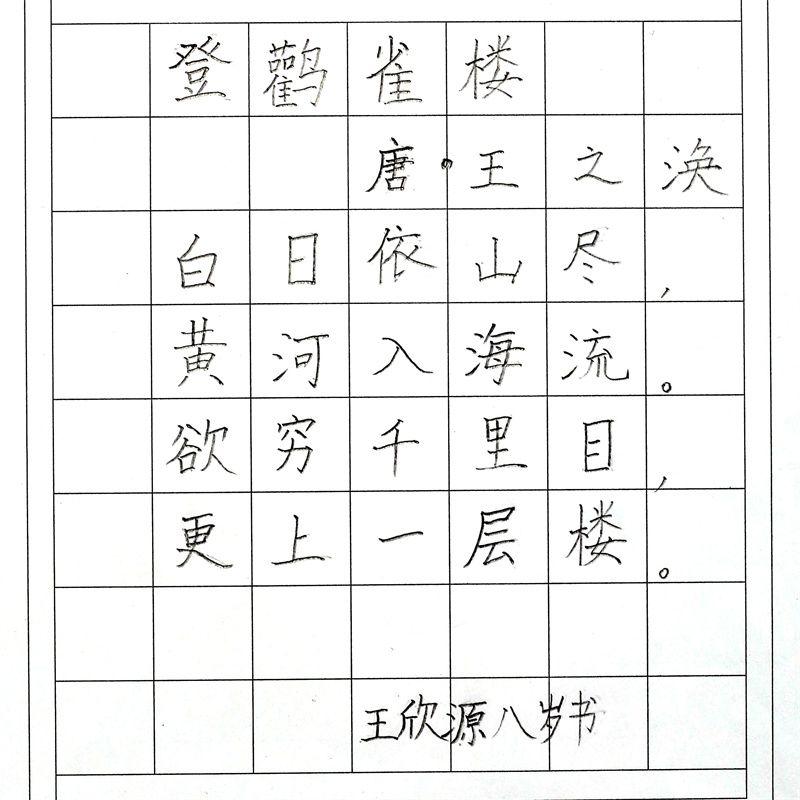 登鹳雀楼
唐·王之涣
白日依山尽，
黄河入海流。
欲穷千里目，
更上一层楼。
王欣源八岁书